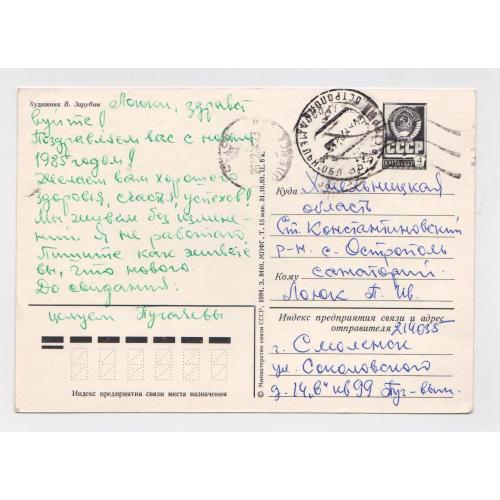 Художник В. Зарубин
Лоюки, здравст
вуйте!
Поздравляем вас с новым
1985 годом!
Желаем вам хорошего
здоровья, счастья успехов!
Мы живем без измене-
ний. Я не работаю
Пишите как живете
вы, что нового.
До свидания:
целуем Пугачевы
Индекс предприятия связи места назначения
© Министерство связи СССР, 1984, З. 8440, МПФГ, Т. 15 млн. 31.10.83, Ц. 6 к.
СССР
ПОЧТА
4
Куда Хмельницкая
область
Ст. Константиновский
р-н с. Острополь
санаторий
Кому Лоюк П. Ив.
Индекс предприятия связи и адрес
отправителя 214035
г. Смоленск
ул. Соколовского
д. 14 "в" кв 99